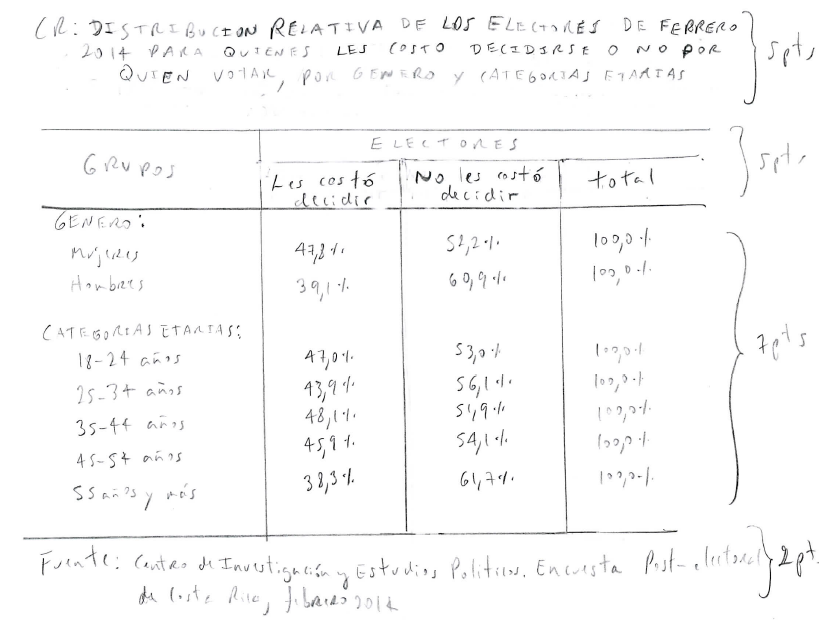 CR: DISTRIBUCION RELATIVA DE LOS ELECTORES DE FERRERO
2014 PARA QUIENES LES COSTO DECIDIRSE O NO POR
QUIEN VOTAR, POR GENERO Y CATEGORIAS ETARIAS
5 pts
GRUPOS
ELECTORES
5 pts
Les costó decidir
No les costó decidir
total
GENERO:
Mujeres 47,8% 52,2% 100,0%
Hombres 39,1% 60,9% 100,0%
CATEGORIAS ETARIAS:
18-24 años 47,0% 53,0% 100,0%
25-34 años 43,9% 56,1% 100,0%
35-44 años 48,1% 51,9% 100,0%
45-54 años 45,9% 54,1% 100,0%
55 años y más 38,3% 61,7% 100,0%
7 pts
Fuente: Centro de Investigación y Estudios Políticos. Encuesta Post-electoral
de Costa Rica, febrero 2014
2 pt.